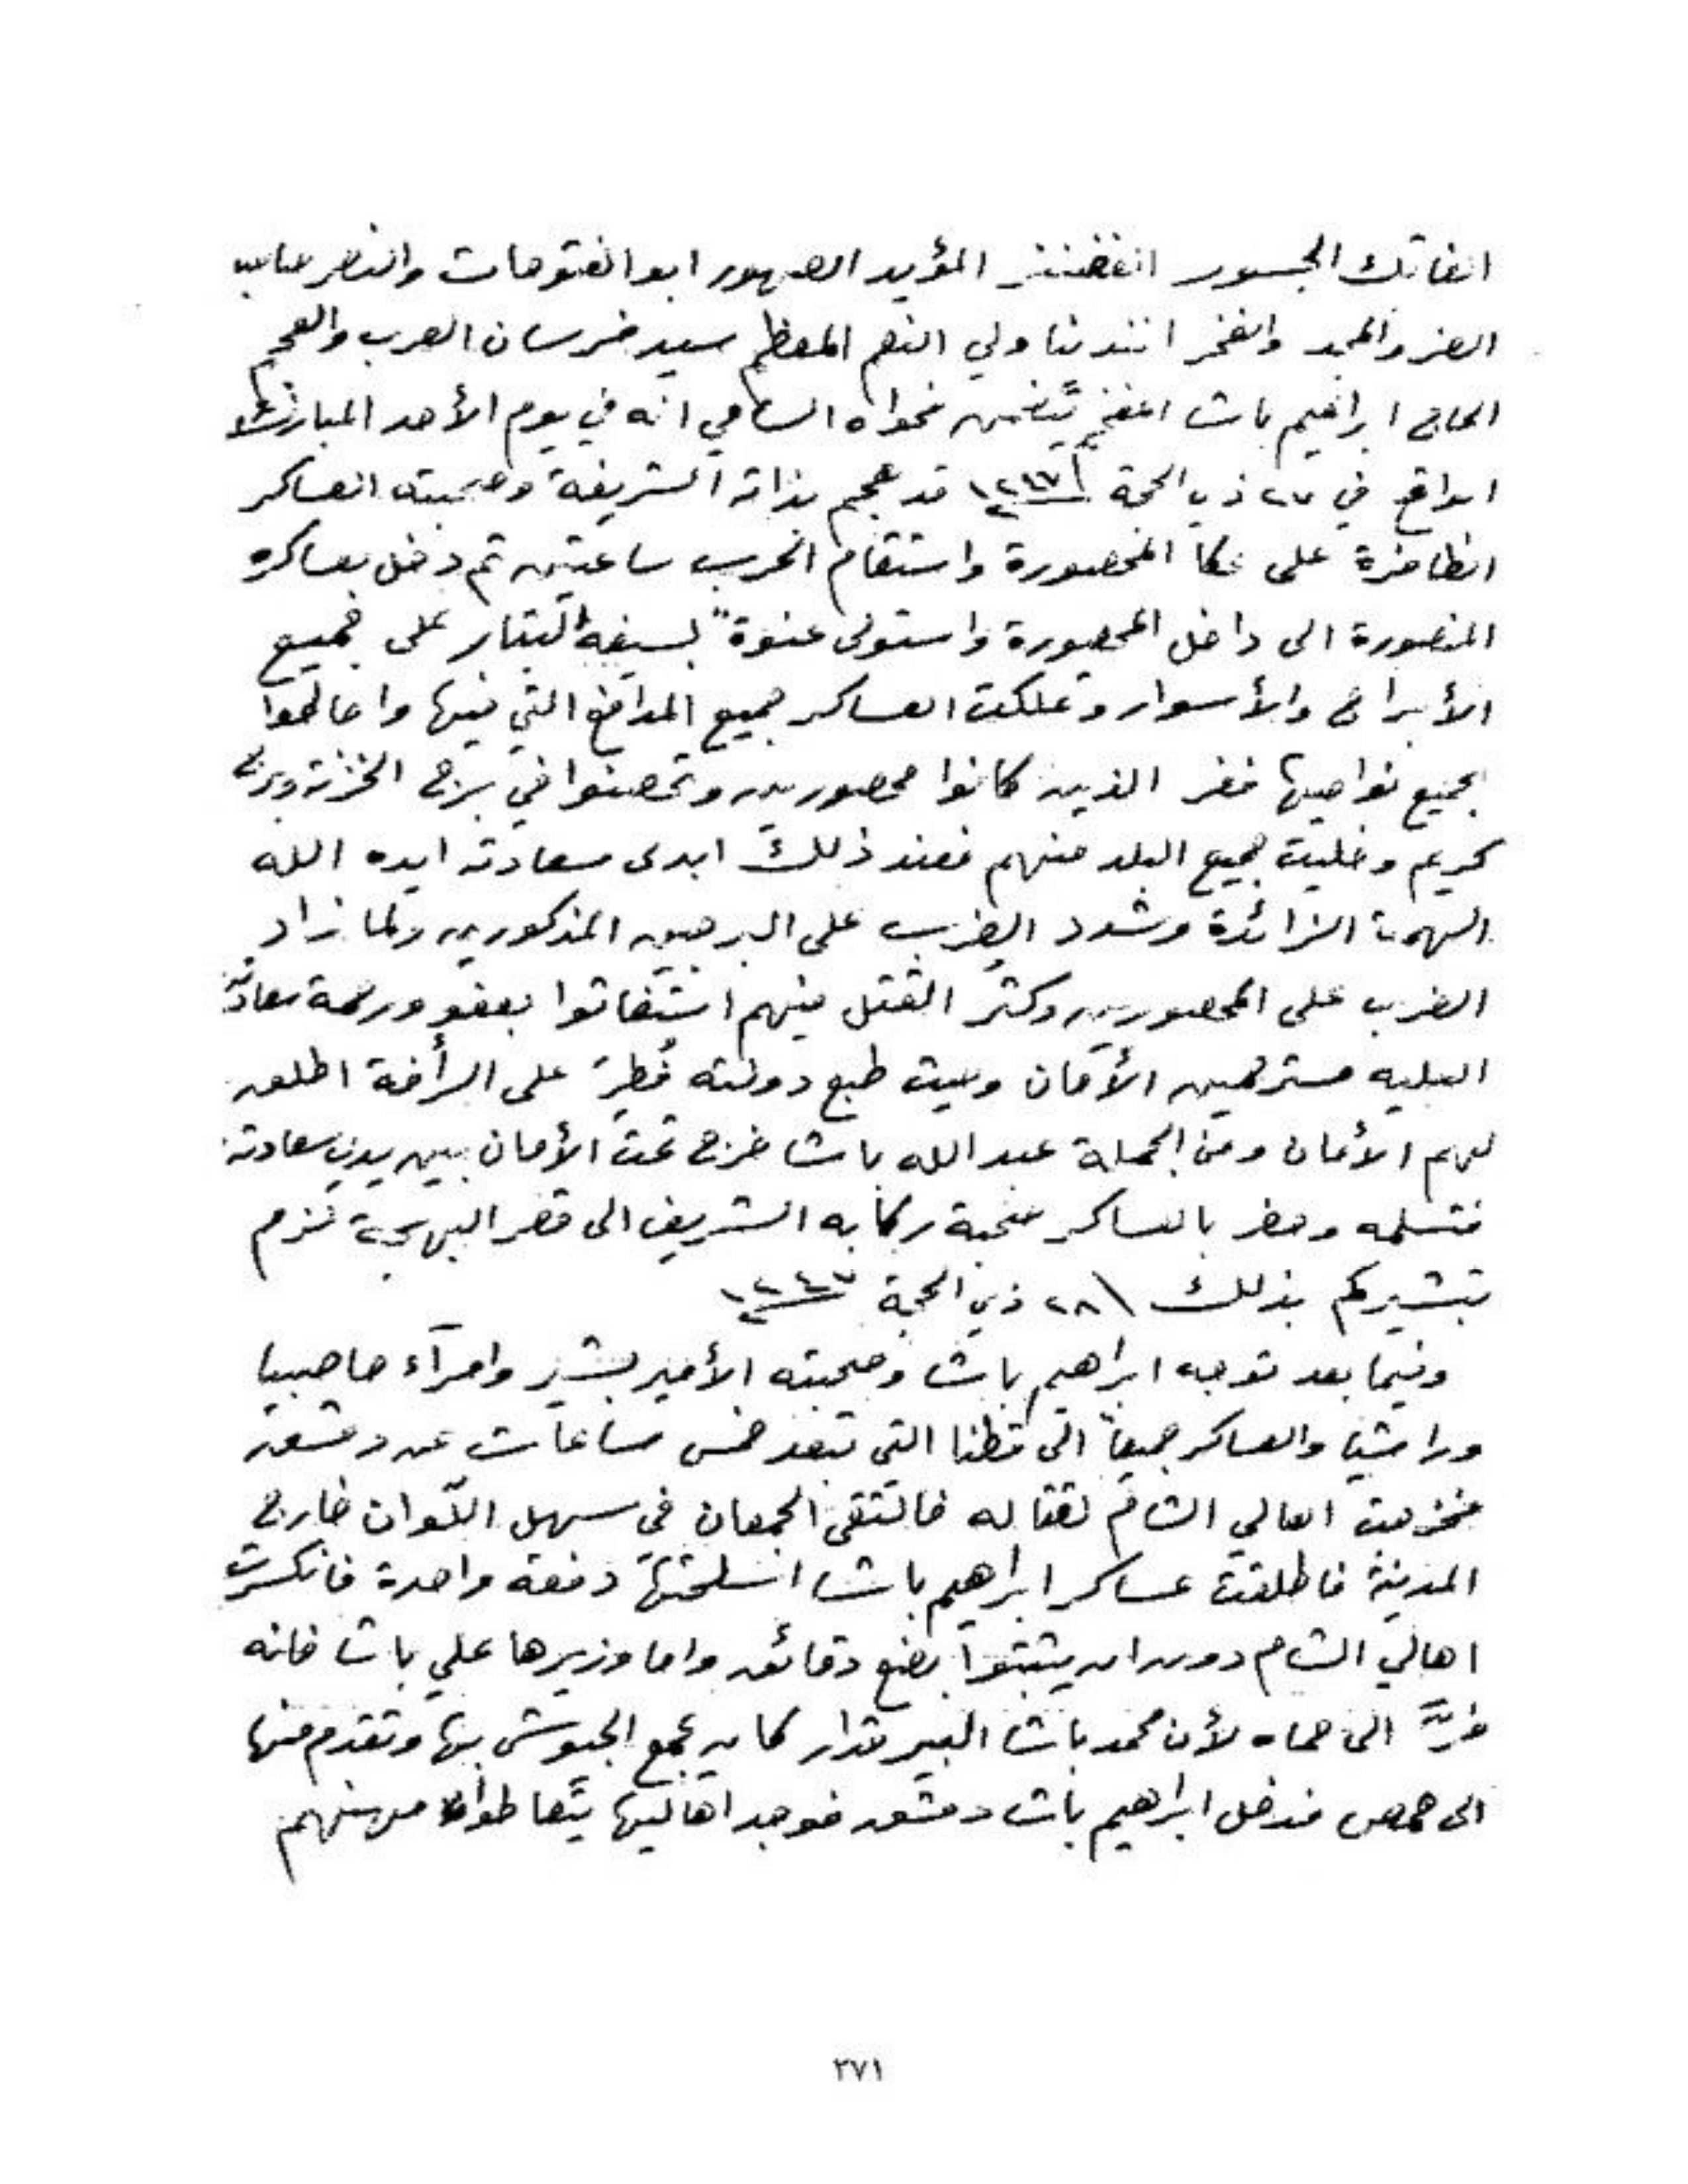 الفاتك الجسور الغضنفر المؤيد الصهور ابو الفتوحات والنصر صاحب
العز والمجد والفخر افندينا ولي النعم المعظم سيد فرسان العرب والعجم
الحاج ابراهيم باشا المفخم يتضمن فحواه السامي انه في يوم الأحد المبارك
الواقع في ٢٧ ذي الحجة قد هجم بذاته الشريفة وصحبته العساكر
الظافرة على عكا المحصورة واستقام الحرب ساعتين ثم دخل بعساكره
المنصورة الى داخل المحصورة واستولى عنوةً بسيفه البتار على جميع
الأبراج والأسوار وتملكت العساكر جميع المدافع التي فيها واحاطوا
بجميع نواحيها ففر الذين كانوا محصورين وتحصنوا في برج الخزنة وبرج
كريم وخليت جميع البلد منهم فعند ذلك ابدى سعادته ايده الله
الهمة الزائدة وشدد الضرب على البرجين المذكورين ولما زاد
الضرب على المحصورين وكثر القتل منهم استغاثوا بعفو ورحمة سعادته
العليه مسترحمين الأمان وحيث طبع دولته فُطِرَ على الرأفة اطلق
لهم الأمان ومن الجملة عبد الله باشا خرج تحت الأمان بين يدي سعادته
فتسلمه وحضر بالعساكر صحبة ركابه الشريف الى قصر البهجة لزم
تبشيركم بذلك \ ٢٨ ذي الحجة ١٢٤٧
وفيما بعد توجه ابراهيم باشا وصحبته الأمير بشير وامرآء حاصبيا
وراشيا والعساكر جميعاً الى قطنا التي تبعد خمس ساعات عن دمشق
فخرجت اهالي الشام لقتاله فالتقى الجمعان في سهل اللوان خارج
المدينة فاطلقت عساكر ابراهيم باشا اسلحتها دفعة واحدة فانكسرت
اهالي الشام دون ان يثبتوا بضع دقائق واما وزيرها علي باشا فانه
فرَّ الى حماه لأن محمد باشا البيرقدار كان يجمع الجيوش بها وتقدم منها
الى حمص فدخل ابراهيم باشا دمشق فوجد اهاليها يتعاطون مهنهم
٢٧١